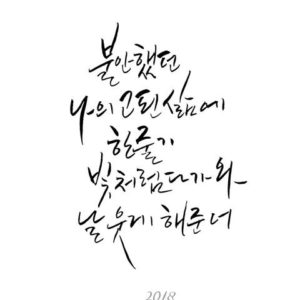 불안했던
나의 고된 삶에
한줄기
빛처럼 다가와
날 웃게 해준 너
2018